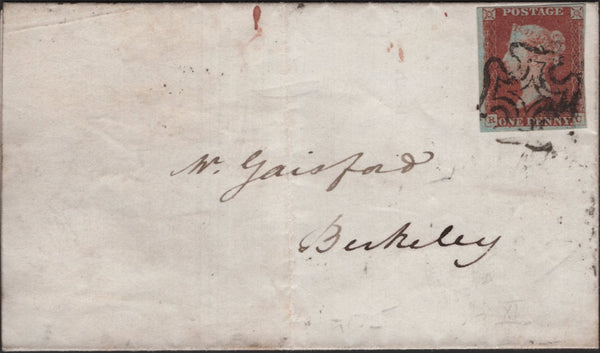 POSTAGE
ONE PENNY
Mr. Gaisford
Berkeley